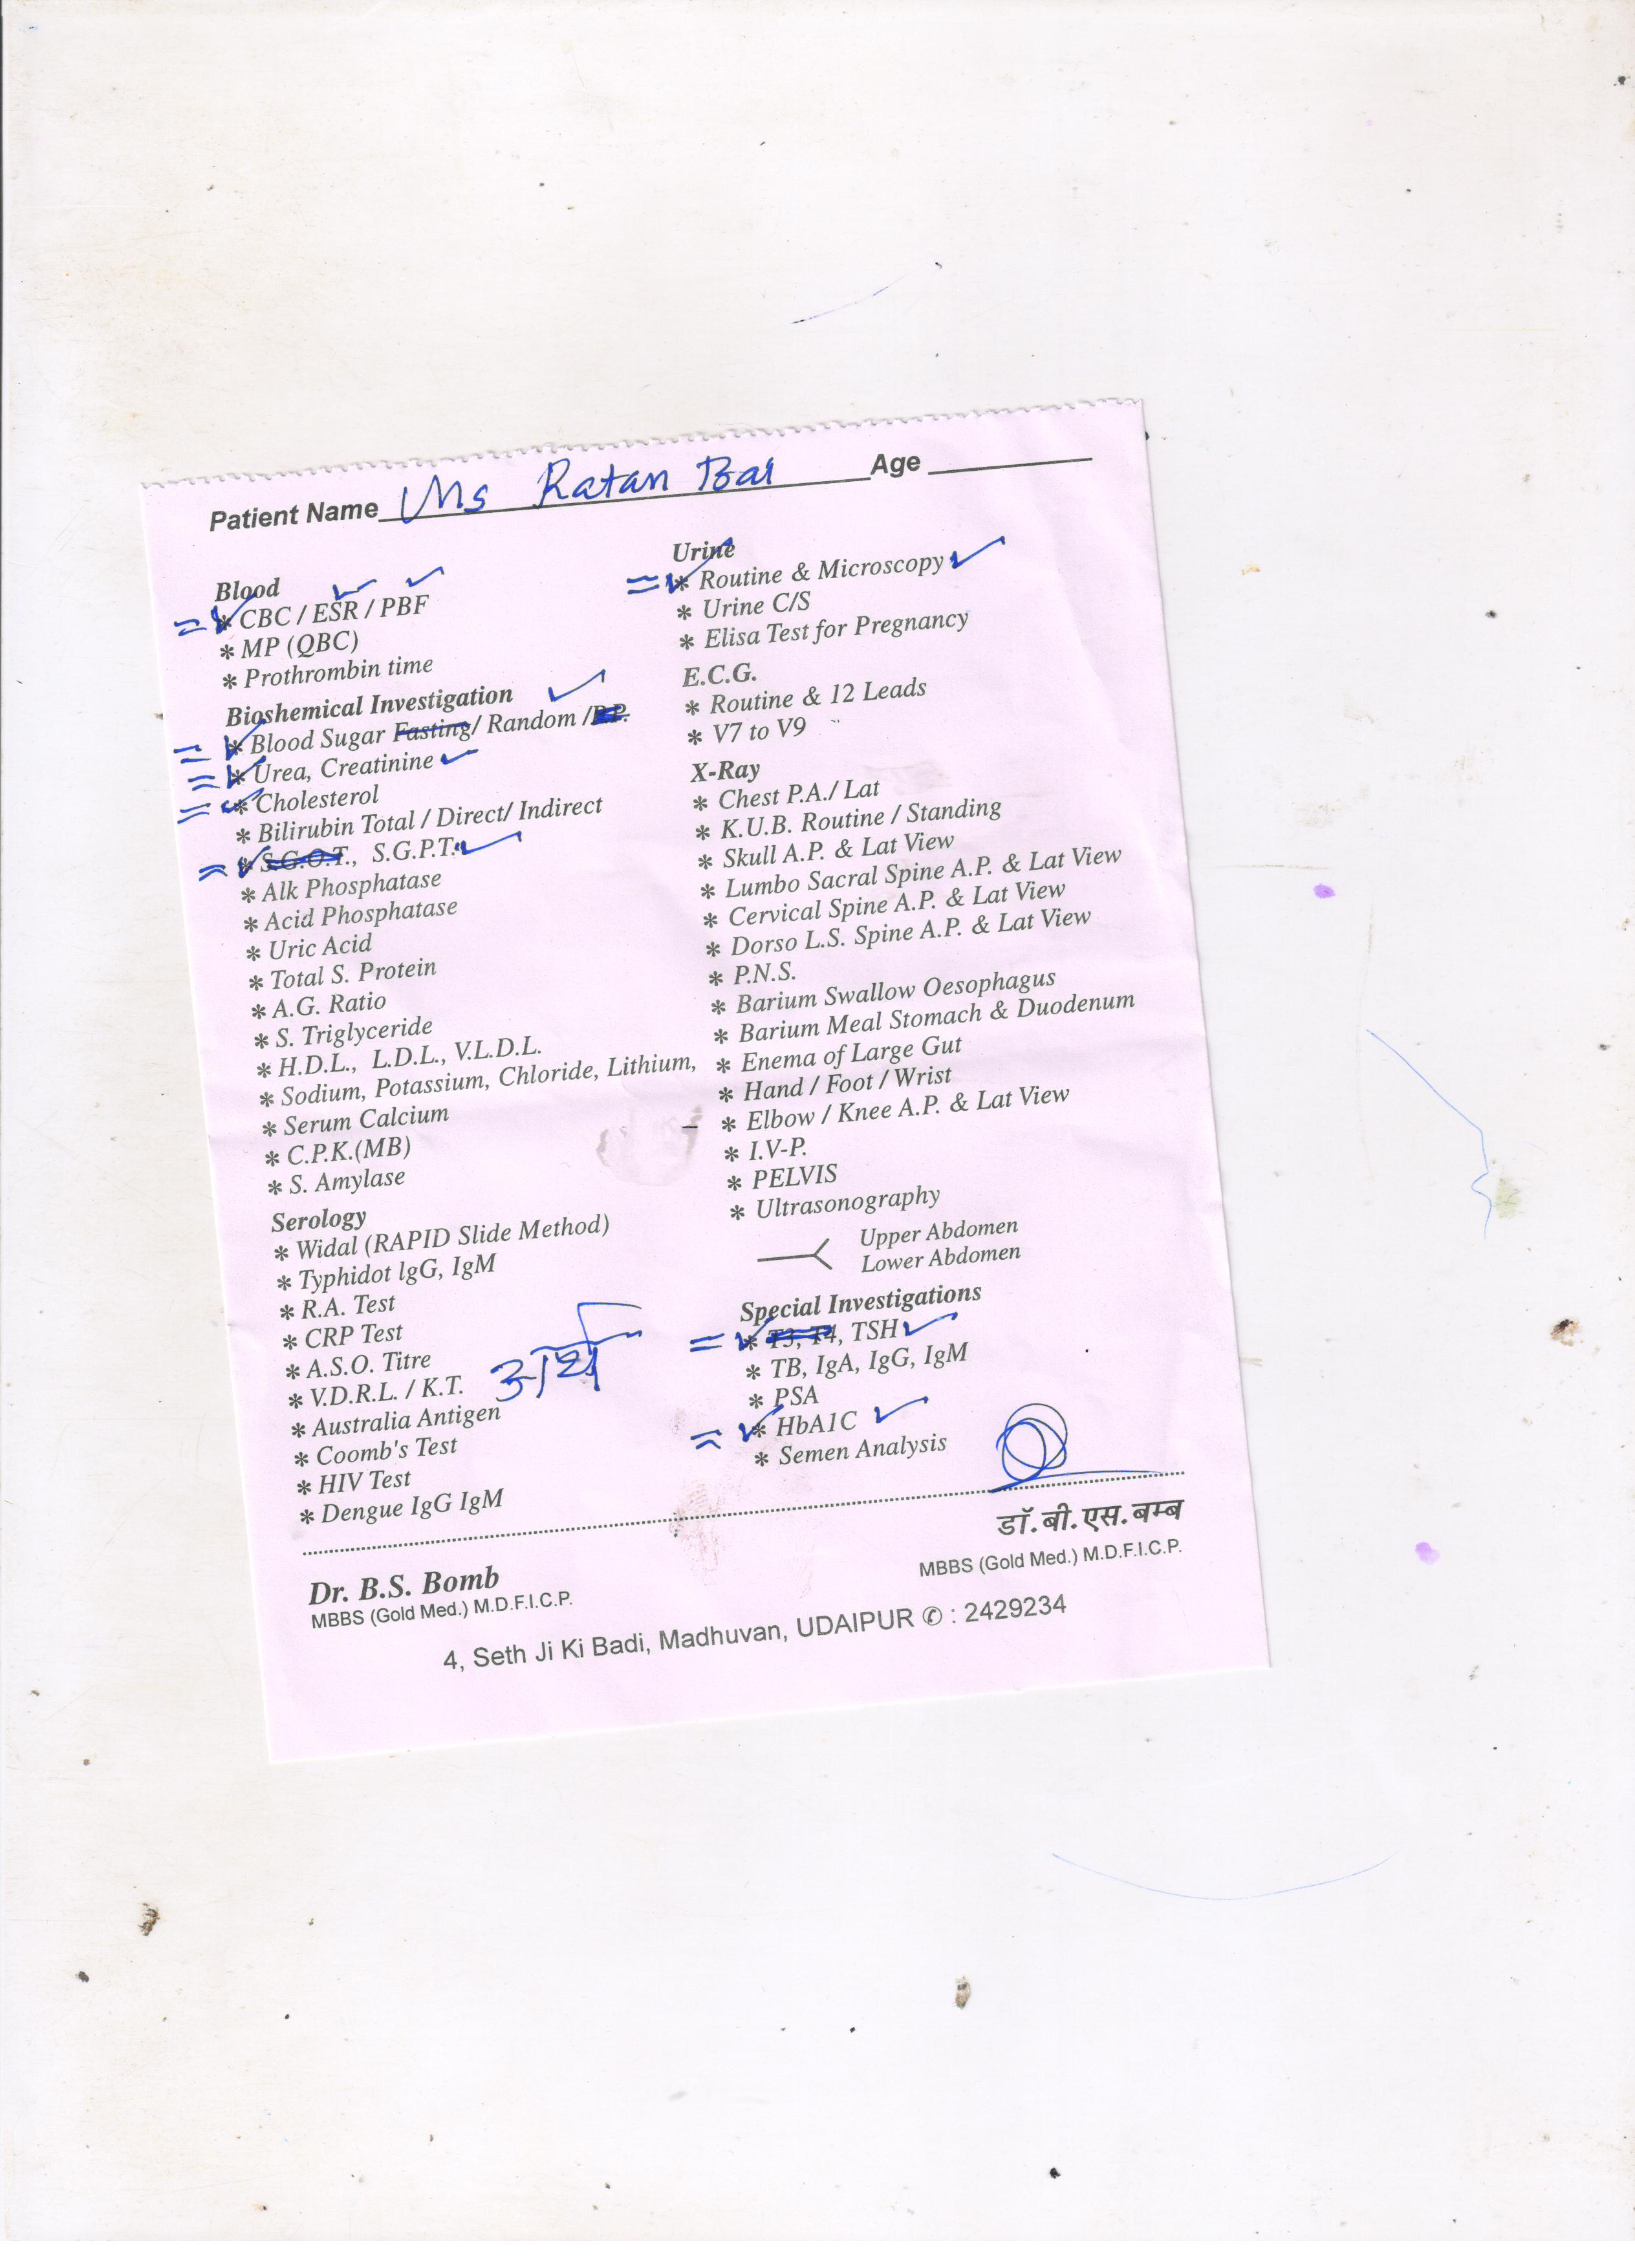 Patient Name Ms Ratan Bai Age
Blood
* CBC / ESR / PBF
* MP (QBC)
* Prothrombin time
Bioshemical Investigation
* Blood Sugar Fasting / Random / P.P.
* Urea, Creatinine
* Cholesterol
* Bilirubin Total / Direct/ Indirect
* S.G.O.T., S.G.P.T.
* Alk Phosphatase
* Acid Phosphatase
* Uric Acid
* Total S. Protein
* A.G. Ratio
* S. Triglyceride
* H.D.L., L.D.L., V.L.D.L.
* Sodium, Potassium, Chloride, Lithium,
* Serum Calcium
* C.P.K.(MB)
* S. Amylase
Serology
* Widal (RAPID Slide Method)
* Typhidot lgG, IgM
* R.A. Test
* CRP Test
* A.S.O. Titre
* V.D.R.L. / K.T.
* Australia Antigen
* Coomb's Test
* HIV Test
* Dengue IgG IgM
Urine
* Routine & Microscopy
* Urine C/S
* Elisa Test for Pregnancy
E.C.G.
* Routine & 12 Leads
* V7 to V9
X-Ray
* Chest P.A./ Lat
* K.U.B. Routine / Standing
* Skull A.P. & Lat View
* Lumbo Sacral Spine A.P. & Lat View
* Cervical Spine A.P. & Lat View
* Dorso L.S. Spine A.P. & Lat View
* P.N.S.
* Barium Swallow Oesophagus
* Barium Meal Stomach & Duodenum
* Enema of Large Gut
* Hand / Foot / Wrist
* Elbow / Knee A.P. & Lat View
* I.V-P.
* PELVIS
* Ultrasonography
Upper Abdomen
Lower Abdomen
Special Investigations
* T3, T4, TSH
* TB, IgA, IgG, IgM
* PSA
* HbA1C
* Semen Analysis
Dr. B.S. Bomb
MBBS (Gold Med.) M.D.F.I.C.P.
डॉ. बी. एस. बम्ब
MBBS (Gold Med.) M.D.F.I.C.P.
4, Seth Ji Ki Badi, Madhuvan, UDAIPUR ✆ : 2429234